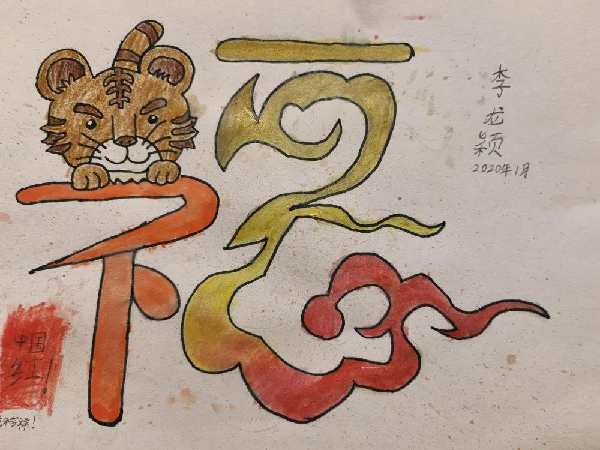 福
李龙颖
2020年1月
中国
红